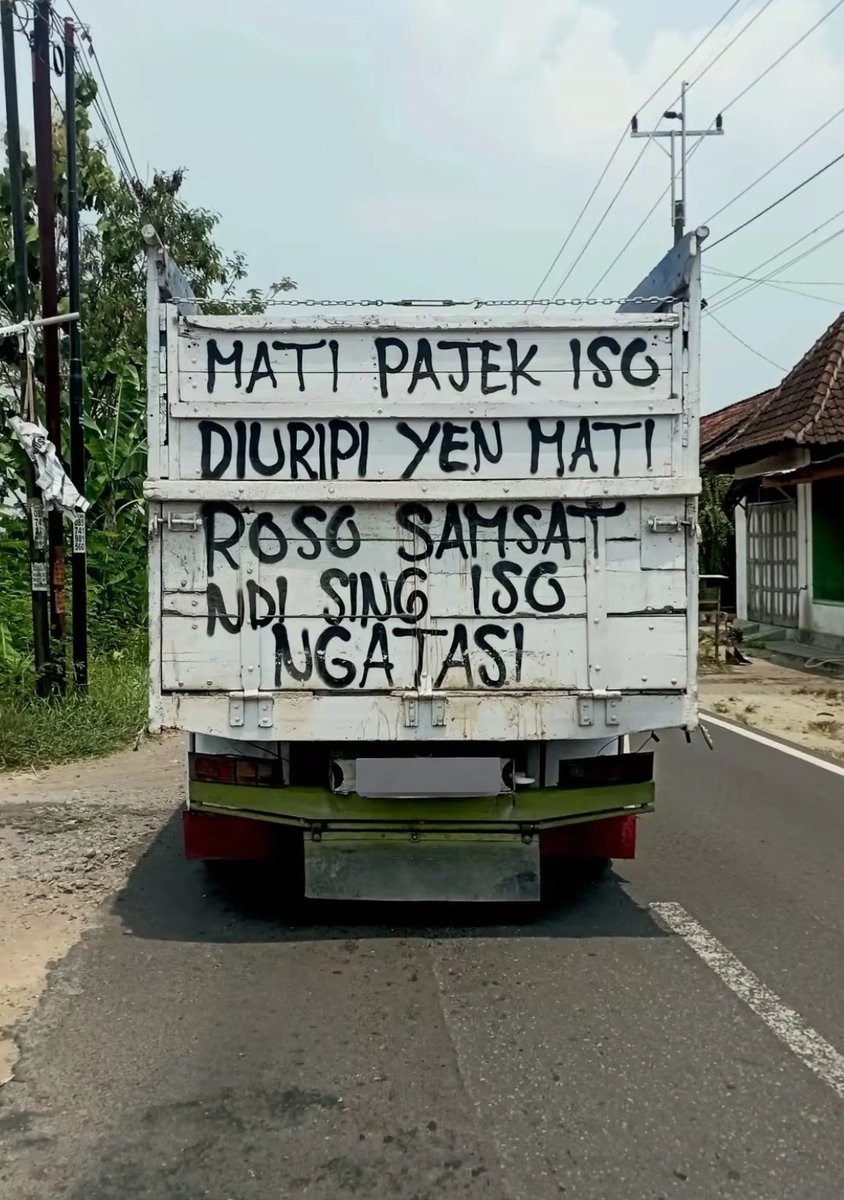 MATI PAJEK ISO
DIURIPI YEN MATI
ROSO SAMSAT
NDI SING ISO
NGATASI